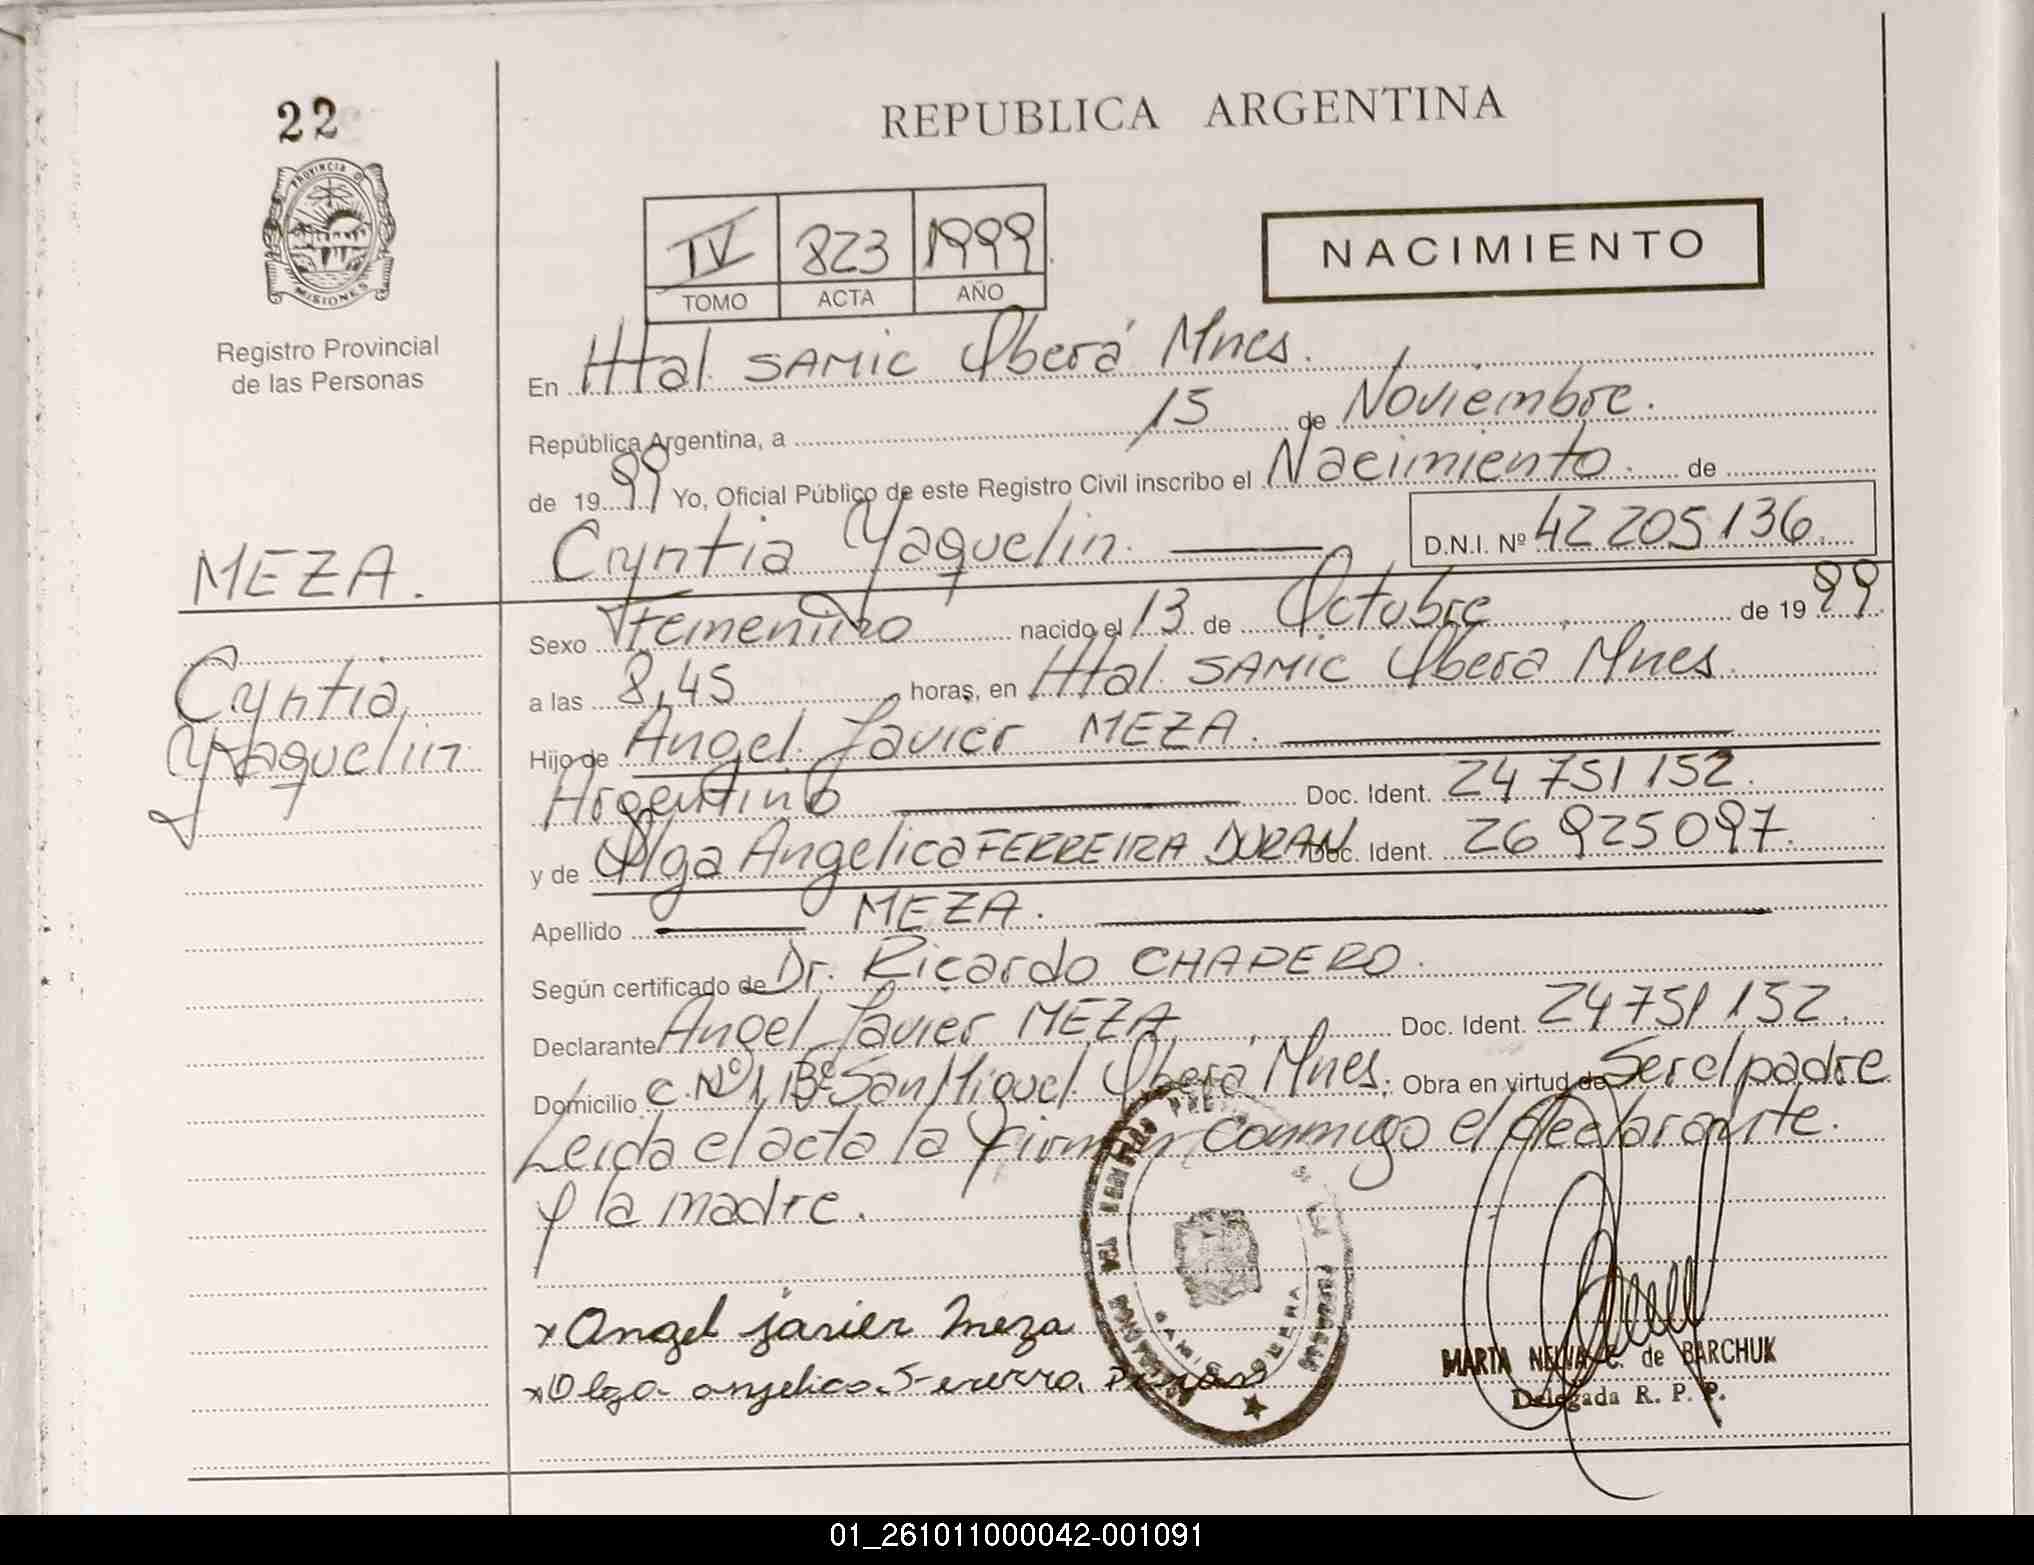 22
REPUBLICA ARGENTINA
PROVINCIA D
MISIONES
Registro Provincial
de las Personas
IV 823 1999
TOMO ACTA AÑO
NACIMIENTO
En Htal. SAMIC Oberá Mnes.
República Argentina, a 15 de Noviembre.
de 1999 Yo, Oficial Público de este Registro Civil inscribo el Nacimiento. de
Cyntia Yaquelin. D.N.I. Nº 42 205 136.
MEZA.
Cyntia
Yaquelin
Sexo Femenino nacido el 13 de Octubre de 1999.
a las 8,45 horas, en Htal. SAMIC Oberá Mnes.
Hijo de Angel Javier MEZA.
Argentino Doc. Ident. 24 751 152.
y de Olga Angelica FERREIRA DURAN Doc. Ident. 26 925 097.
Apellido MEZA.
Según certificado de Dr. Ricardo CHAPERO.
Declarante Angel Javier MEZA Doc. Ident. 24 751 152.
Domicilio C. Nº 1 Bº San Miguel Oberá Mnes. Obra en virtud de Ser el padre
Leida el acta la firman conmigo el declarante.
y la madre.
x Angel javier meza
x Olga angelica
MARTA NELVA C. de BARCHUK
Delegada R. P. P.
01_261011000042-001091